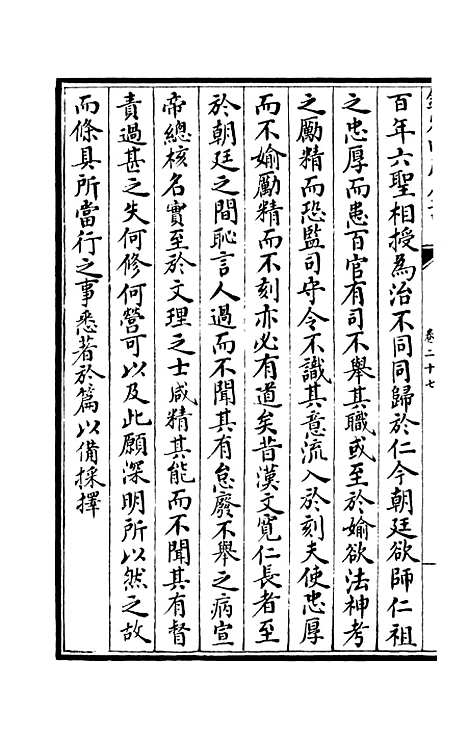 卷二十七
百年六聖相授為治不同同歸於仁今朝廷欲師仁祖
之忠厚而患百官有司不舉其職或至於媮欲法神考
之勵精而恐監司守令不識其意流入於刻夫使忠厚
而不媮勵精而不刻亦必有道矣昔漢文寛仁長者至
於朝廷之間恥言人過而不聞其有怠廢不舉之病宣
帝總核名實至於文理之士咸精其能而不聞其有督
責過甚之失何修何營可以及此願深明所以然之故
而條具所當行之事悉著於篇以備採擇